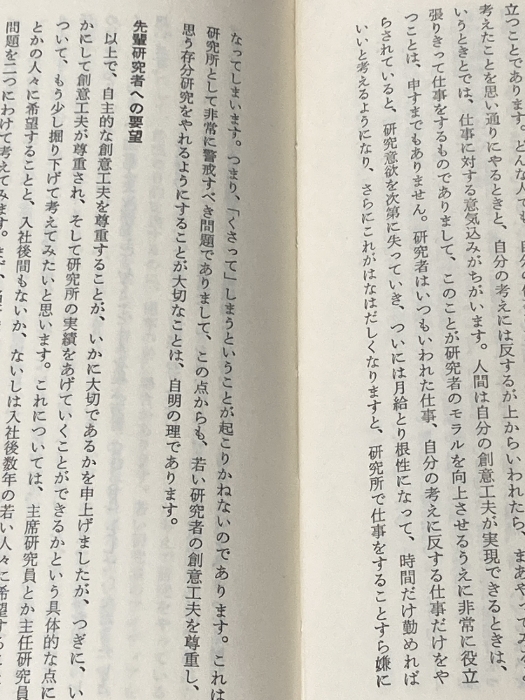 立つことであります。どんな
考えたことを思い通りにやるときと、自分の考えには反するが上からいわれたら、まあやってみる
いうときとでは、仕事に対する意気込みがちがいます。人間は自分の創意工夫が実現できるときは、
張りきって仕事をするものでありまして、このことが研究者のモラルを向上させるうえに非常に役立
つことは、申すまでもありません。研究者はいつもいわれた仕事、自分の考えに反する仕事だけをや
らされていると、研究意欲を次第に失っていき、ついには月給とり根性になって、時間だけ勤めれば
いいと考えるようになり、さらにこれがはなはだしくなりますと、研究所で仕事をすることすら嫌に
なってしまいます。つまり、「くさって」しまうということが起こりかねないのであります。これは
研究所として非常に警戒すべき問題でありまして、この点からも、若い研究者の創意工夫を尊重し、
思う存分研究をやれるようにすることが大切なことは、自明の理であります。
先輩研究者への要望
以上で、自主的な創意工夫を尊重することが、いかに大切であるかを申上げましたが、つぎに、い
かにして創意工夫が尊重され、そして研究所の実績をあげていくことができるかという具体的な点に
ついて、もう少し掘り下げて考えてみたいと思います。これについては、主席研究員とか主任研究員
とかの人々に希望することと、入社後間もないか、ないしは入社後数年の若い人々に希望すること
問題を二つにわけて考えてみます。